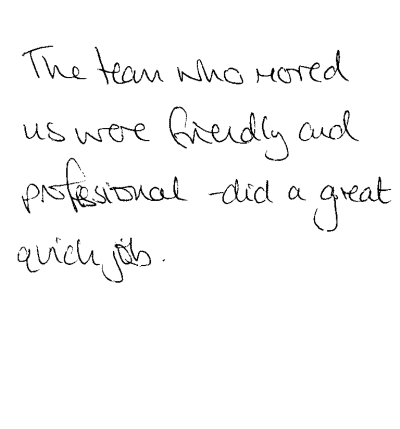 The team who moved
us were friendly and
professional - did a great
quick job.